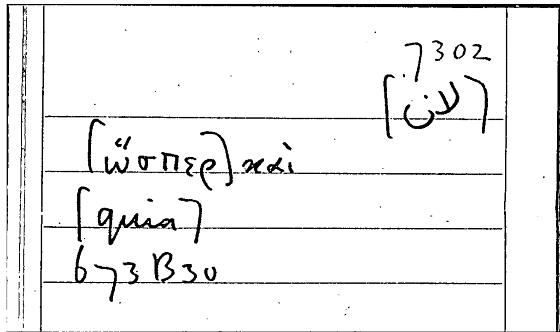 .7302
[لان]
[ὥσπερ] καὶ
[quia]
673B30